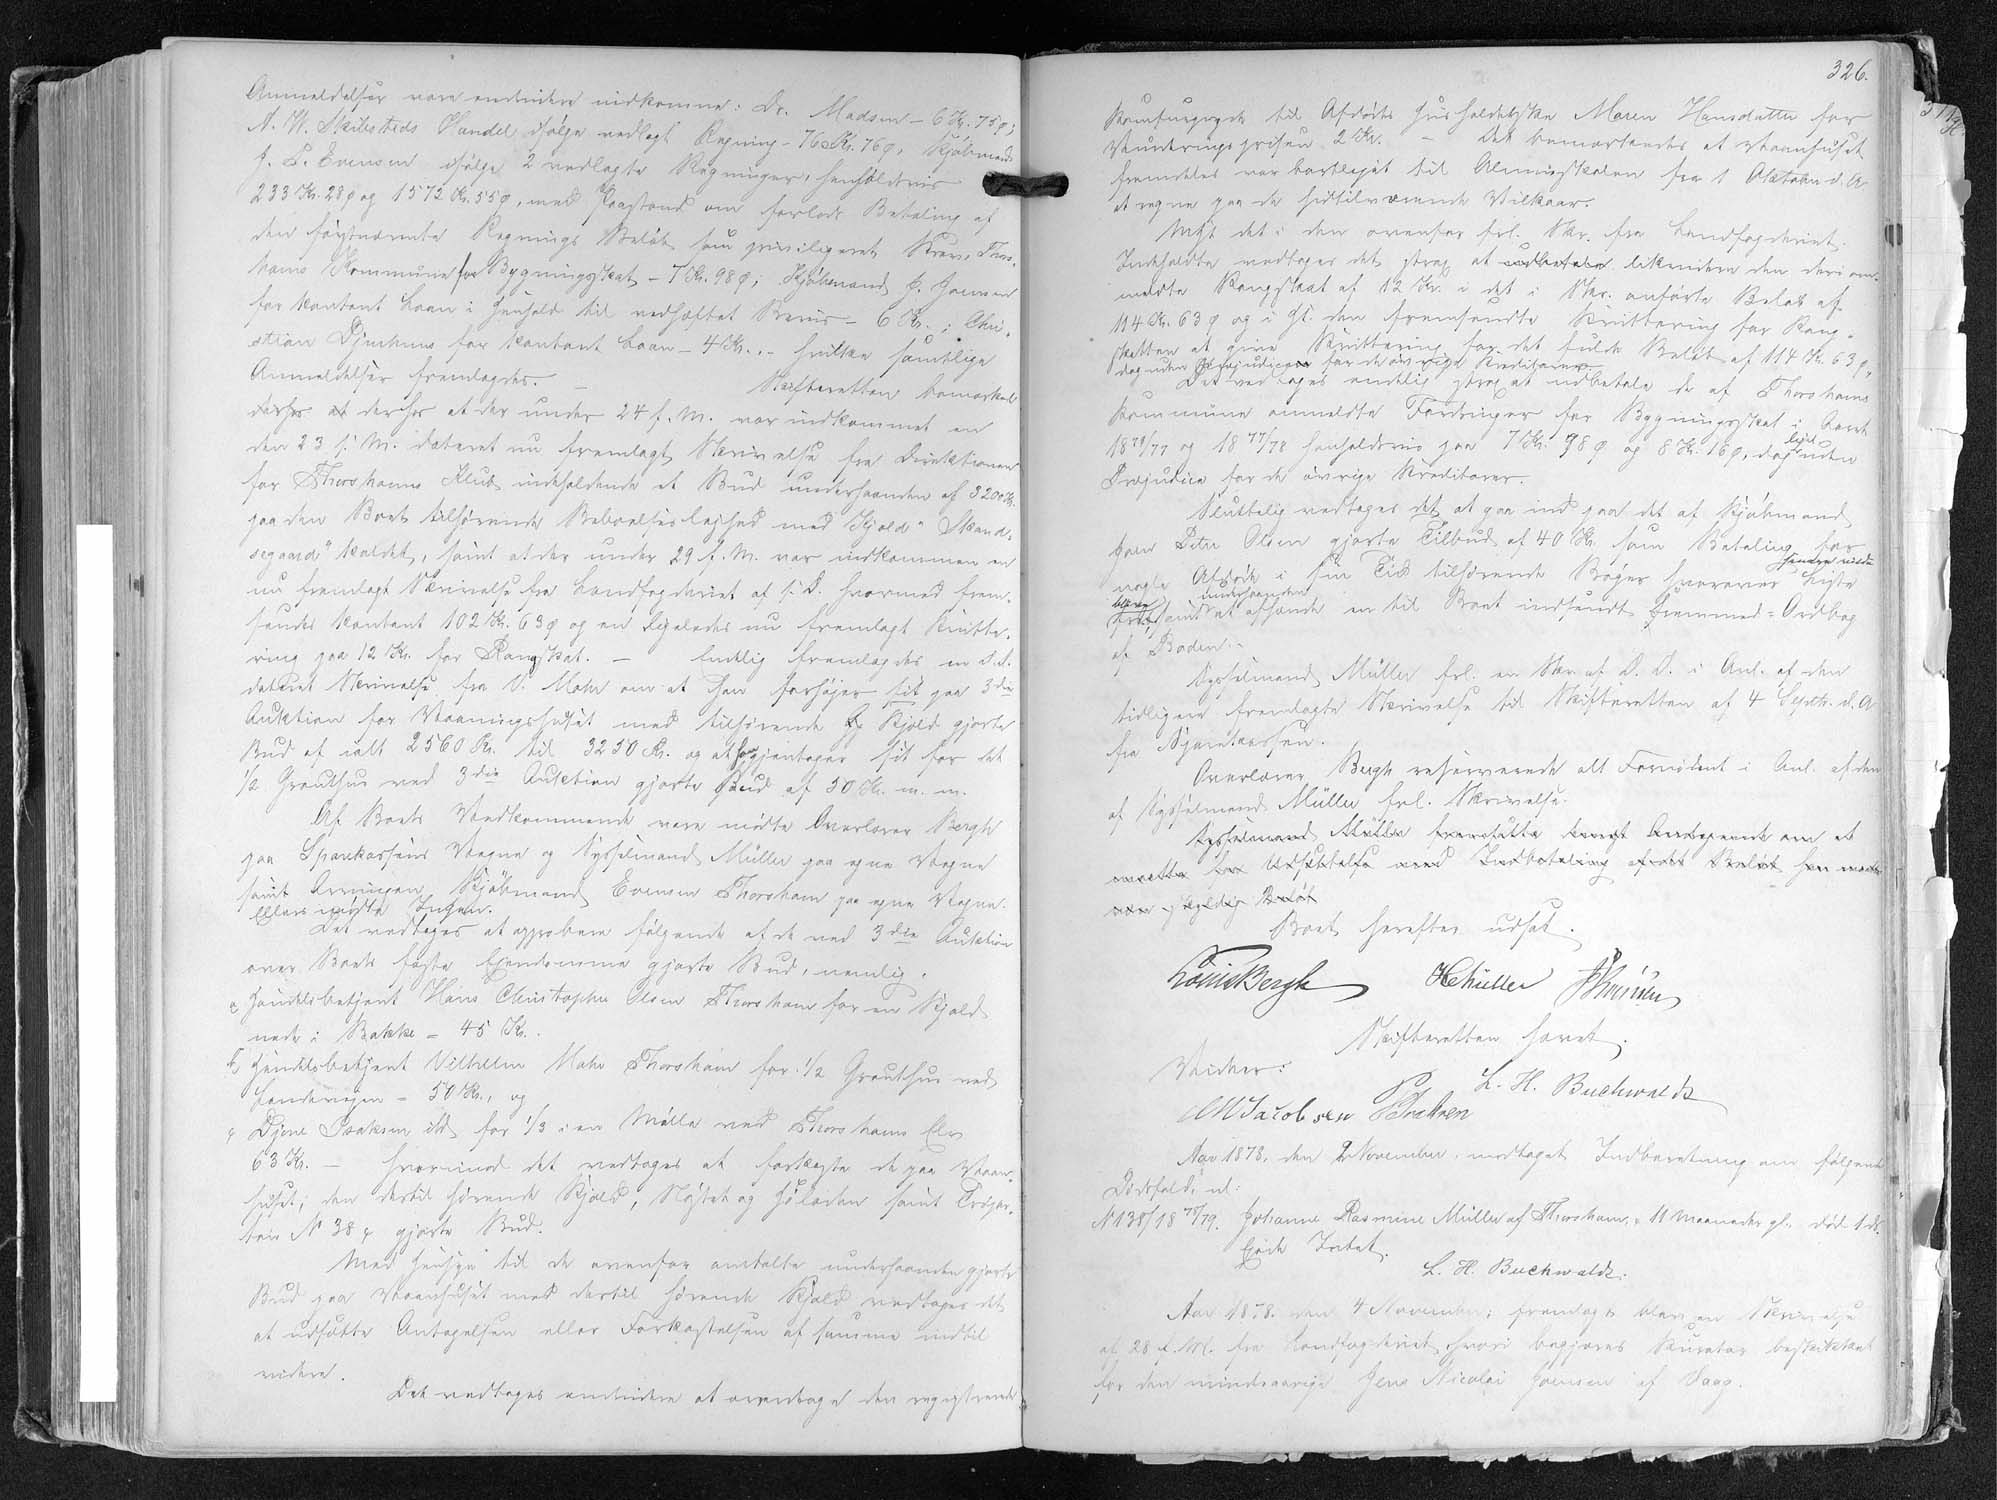 Anmeldelser vare endvidere indkomne: Dr. Madsen - 6 Kr. 75 ø;
A. W. Skibsteds Handel ifølge vedlagt Regning - 76 Kr. 76 ø, Kjøbmand
J. P. Evensen ifølge 2 vedlagte Regninger, henholdsvis
233 Kr. 28 ø og 1572 Kr. 55 ø, med Paastand om forlods Betaling af
den førstnævnte Regnings Beløb som privilegeret Krav, Thors-
havns Kommune for Bygningsskat - 7 Kr. 98 ø; Kjøbmand J. Hansen
for kontant Laan i Henhold til vedhæftet Bevis - 6 Kr.; Chri-
stian Djurhuus for kontant Laan - 4 Kr., - hvilke samtlige
Anmeldelser fremlagdes. - Skifteretten bemærkede
derhos at derhos at der under 24 f. M. var indkommet en
den 23 s. M. dateret nu fremlagt Skrivelse fra Direktionen
for Thorshavns Klub indeholdende et Bud underhaanden af 3200 Kr.
paa den Boet tilhørende Beboelseslejlighed med Kjold "
segaard" kaldet, samt at der under 29 f. M. var indkommen en
nu fremlagt Skrivelse fra Landfogderiet af s. D. hvormed frem-
sendes kontant 102 Kr. 63 ø og en ligeledes nu fremlagt Kvitte-
ring paa 12 Kr. for Rangskat. - Endelig fremlagdes en d. d.
dateret Skrivelse fra V. Mohr om at han forhøjer sit paa 3die
Auktion for Vaaningshuset med tilhørende Kjold gjorte
Bud af ialt 2560 Kr. til 3250 Kr. og at han gjentager sit for det
1/2 Grouthus ved 3die Auktion gjorte Bud af 50 Kr. m. m.
Af Boets Vedkommende vare mødte Overlærer Bergh
paa Sparekassens Vegne og Sysselmand Müller paa egne Vegne
samt Arvingen Kjøbmand Evensen Thorshavn paa egne Vegne.
Ellers mødte Ingen.
Det vedtoges at approbere følgende af de ved 3die Auktion
over Boets faste Ejendomme gjorte Bud, nemlig:
a Handelsbetjent Hans Christopher Olsen Thorshavn for en Kjold
nede i Bakke = 45 Kr.
b Handelsbetjent Vilhelm Mohr Thorshavn for 1/2 Grouthus ved
Landevejen - 50 Kr., og
c Djone Isaksen ibd for 1/3 i en Mølle ved Thorshavns Elv
63 Kr. - hvorimod det vedtoges at forkaste de paa Vaan-
huset, den dertil hørende Kjold, Nøstet og Høladen samt
No 38 c gjorte Bud.
Med Hensyn til de ovenfor omtalte underhaanden gjorte
Bud paa Vaanhuset med dertil hørende Kjold vedtoges det
at udsætte Antagelsen eller Forkastelsen af samme indtil
videre.
Det vedtoges endvidere at overdrage den registrerede
326.
til Afdøds Husholderske Maren Hansdatter for
Vurderingsprisen 2 Kr. - Det bemærkedes at Vaanhuset
fremdeles var bortlejet til Almueskolen fra 1 Oktober d. A.
at regne paa de hidtilværende Vilkaar.
Mht det i den ovenfor frl. Skr. fra Landfogderiet
Indeholdte vedtoges det strax at udbetale likvidere den deri om-
meldte Rangskat af 12 Kr. i det i Skr. anførte Beløb af
114 Kr. 63 ø og i Hl. den fremsendte Kvittering for Rang-
skatten at give Kvittering for det fulde Beløb af 114 Kr. 63 ø,
dog uden Præjudice for de øvrige Kreditorer.
Det vedtoges endelig strax at udbetale de af Thorshavns
Kommune anmeldte Fordringer for Bygningsskat i Aaret
1876/77 og 1877/78 henholdsvis paa 7 Kr. 98 ø og 8 Kr. 16 ø, dog ligel uden
Præjudice for de øvrige Kreditorer.
Sluttelig vedtoges det at gaa ind paa det af Kjøbmand
Joen Peter Olsen gjorte Tilbud af 40 Kr. som Betaling for
nogle Afdøde i sin Tid tilhørende Bøger hvorover Liste
samt underhaanden at afhænde en til Boet indsendt Fremmed-Ordbog
af Boden.
Sysselmand Müller frl. en Skr. af D. D. i Anl. af den
tidligere fremlagte Skrivelse til Skifteretten af 4 Septb. d. A
fra Sparekassen.
Overlærer Bergh reserverede alt Fornødent i Anl. af den
af Sysselmand Müller frl. Skrivelse.
Sysselmand Müller fremsatte derpaa om at
for Udsættelse med Indbetaling af det Beløb han
skyldig Beløb
Boet herefter udsat.
Louis Bergh HMüller
Skifteretten hævet.
Vidner: L. H. Buchwaldt
MJacobsen
Aar 1878. den 2 November, modtoges Indberetning om følgende
Dødsfald, nl:
No 138/1878/79. Johanne Rasmine Müller af Thorshavn, 11 Maaneder gl. død 1 ds.
Ejede Intet.
L. H. Buchwaldt.
Aar 1878. den 4 November; fremlagdes en Skrivelse
af 28 f. M. fra Landfogderiet hvori begjæres Kurator beskikket
for den mindreaarige Jens Nicolai Joensen af Vaag.